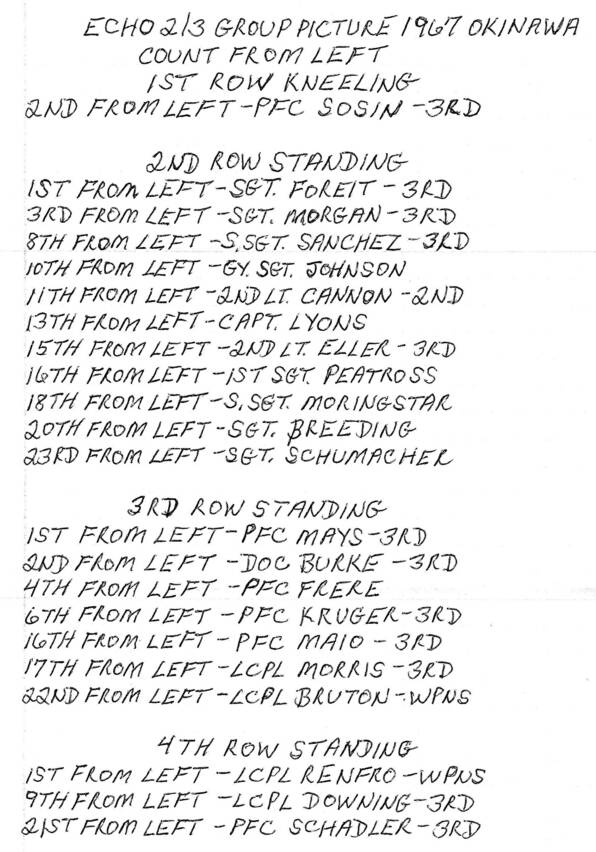 ECHO 2/3 GROUP PICTURE 1967 OKINAWA
COUNT FROM LEFT
1ST ROW KNEELING
2ND FROM LEFT-PFC SOSIN-3RD
2ND ROW STANDING
1ST FROM LEFT-SGT. FOREIT-3RD
3RD FROM LEFT-SGT. MORGAN-3RD
8TH FROM LEFT-S.SGT. SANCHEZ-3RD
10TH FROM LEFT-GY. SGT. JOHNSON
11TH FROM LEFT-2ND LT. CANNON-2ND
13TH FROM LEFT-CAPT. LYONS
15TH FROM LEFT-2ND LT. ELLER-3RD
16TH FROM LEFT-1ST SGT. PEATROSS
18TH FROM LEFT-S.SGT. MORINGSTAR
20TH FROM LEFT-SGT. BREEDING
23RD FROM LEFT-SGT. SCHUMACHER
3RD ROW STANDING
1ST FROM LEFT-PFC MAYS-3RD
2ND FROM LEFT-DOC BURKE-3RD
4TH FROM LEFT-PFC FRERE
6TH FROM LEFT-PFC KRUGER-3RD
16TH FROM LEFT-PFC MAIO-3RD
17TH FROM LEFT-LCPL MORRIS-3RD
22ND FROM LEFT-LCPL BRUTON-WPNS
4TH ROW STANDING
1ST FROM LEFT-LCPL RENFRO-WPNS
9TH FROM LEFT-LCPL DOWNING-3RD
21ST FROM LEFT-PFC SCHADLER-3RD